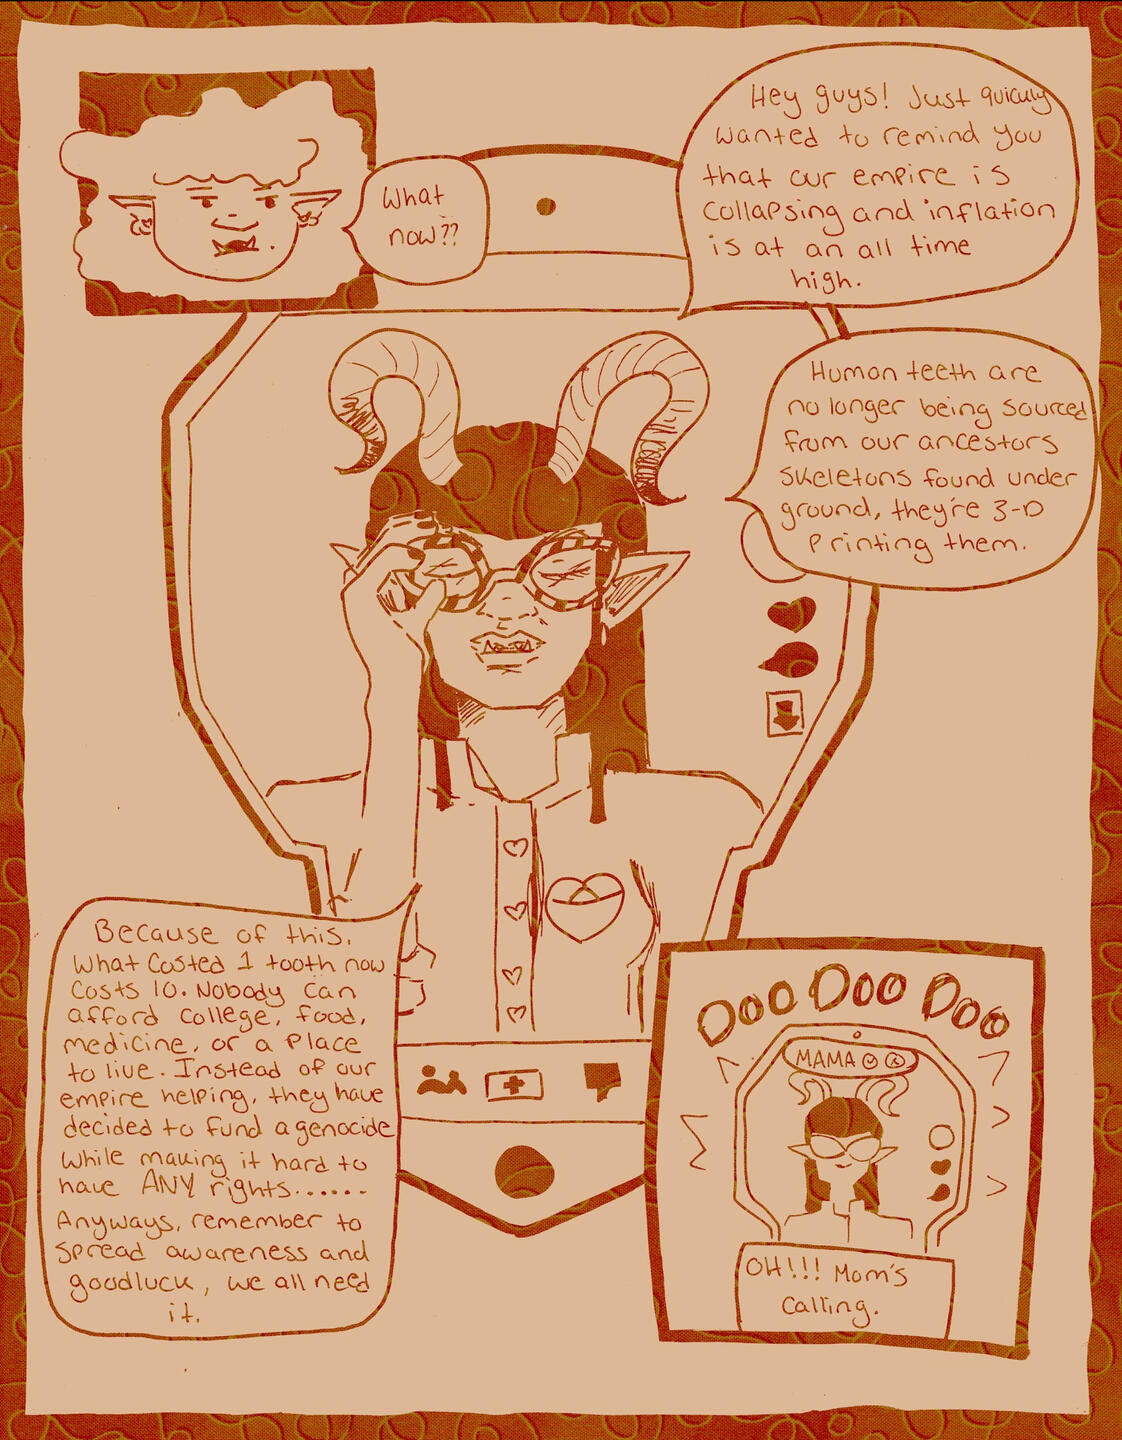 What
now??
Hey guys! Just quickly
wanted to remind you
that our empire is
collapsing and inflation
is at an all time
high.
Human teeth are
no longer being sourced
from our ancestors
skeletons found under
ground, they're 3-D
printing them.
Because of this,
what costed 1 tooth now
costs 10. Nobody can
afford college, food,
medicine, or a place
to live. Instead of our
empire helping, they have
decided to fund a genocide
while making it hard to
have ANY rights......
Anyways, remember to
spread awareness and
goodluck, we all need
it.
DOO DOO DOO
MAMA
OH!!! Mom's
calling.